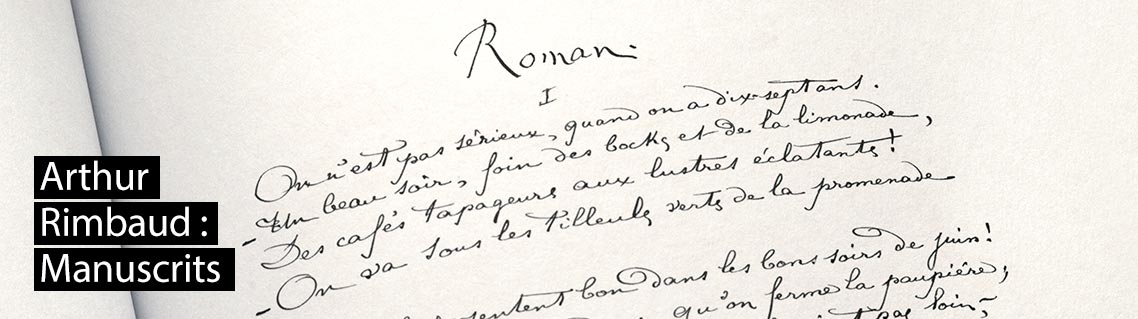 Arthur
Rimbaud :
Manuscrits
Roman.
I
On n'est pas sérieux, quand on a dix-sept ans.
- Un beau soir, foin des bocks et de la limonade,
Des cafés tapageurs aux lustres éclatants!
- On va sous les tilleuls verts de la promenade.
sentent bon dans les bons soirs de juin!
qu'on ferme la paupière;
pas loin,